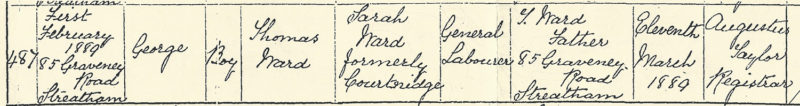 Streatham
487
First
February
1889
85 Graveney
Road
Streatham
George
Boy
Thomas
Ward
Sarah
Ward
formerly
Courtridge
General
Labourer
T. Ward
Father
85 Graveney
Road
Streatham
Eleventh
March
1889
Augustus
Taylor
Registrar